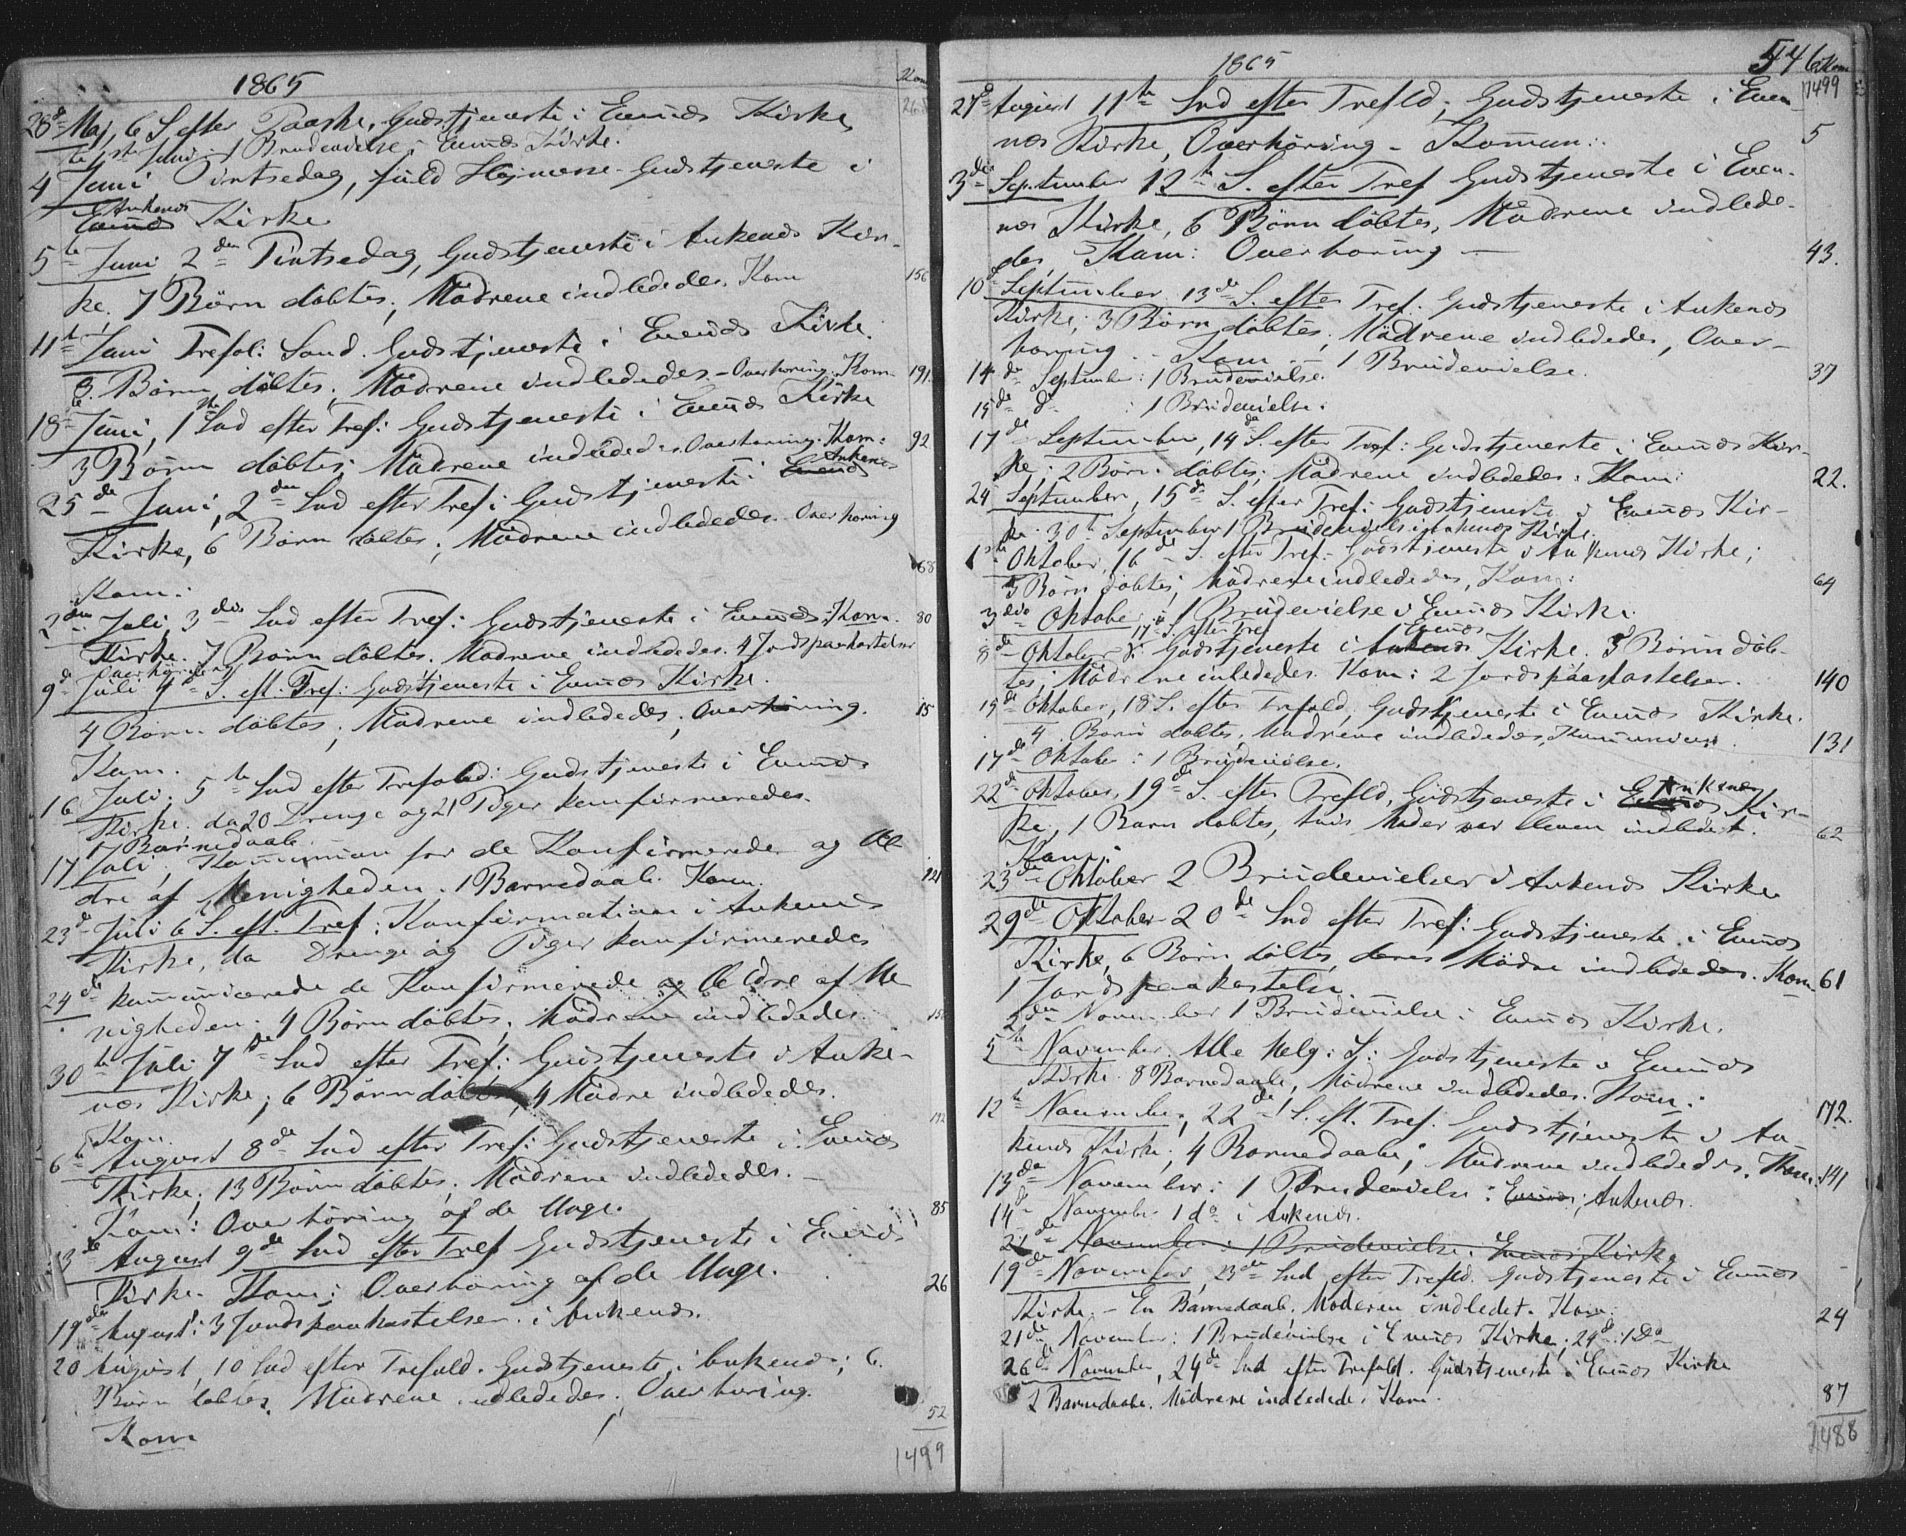 1865
Kom
28d Maj, 6 S. efter Paaske, Gudstjeneste i Evenæs Kirke
1ste Juni 1 Brudevielse i Evenæs Kirke.
4 Juni Pintsedag, fuld Højmesse Gudstjeneste i
Ankenæs
Evenæs Kirke.
5te Juni 2den Pintsedag, Gudstjeneste i Ankenæs Kir-
ke. 7 Børn døbtes; Mødrene indledede. Kom 156
11te Juni Trefol: Sønd. Gudstjeneste i Evenæs Kirke.
8. Børn døbtes; Mødrene indledede. - Overhøring. Kom. 191.
18de Juni, 1ste Snd efter Tref: Gudstjeneste i Evenæs Kirke
3 Børn døbtes; Mødrene indledede. Overhøring. Kom: 92
Ankenæs
25de Juni, 2den Snd efter Tref: Gudstjeneste i Evenæs
Kirke, 6 Børn døbtes; Mødrene indledede. Overhøring
Kom: 68
2den Juli 3die Snd efter Tref: Gudstjeneste i Evenæs. Kom. 80
Kirke. 7 Børn døbtes. Mødrene indledede. 4 Jordspaakastelser
Overhøring
9d Juli 4de S. eft. Tref: Gudstjeneste i Evenæs Kirke.
4 Børn døbtes; Mødrene indledede; Overhøring. 15
Kom.
16 Juli, 5te Snd efter Trefold: Gudstjeneste i Evenæs
Kirke, da 20 Drenge og 21 Piger konfirmeredes.
17 Barnedaab.
17 Juli, Kommunion for de Konfirmerede og Æl-
dre af Menigheden. 1 Barnedaab. Kom. 121
23d Juli 6 S. eft. Tref: Konfirmation i Ankenæs
Kirke, da Drenge og Piger konfirmeredes
24de kommunicerede de Konfirmerede og Ældre af Me-
nigheden. 4 Børn døbtes; Mødrene indledede.
30te Juli 7de Snd efter Tref: Gudstjeneste i Anke-
næs Kirke; 6 Børn døbtes, 4 Mødre indledede.
Kom. 142
6te August 8de Snd efter Tref: Gudstjeneste i Evenæs
Kirke; 13 Børn døbtes; Mødrene indledede. -
Kom: Overhøring af de Unge. 85
13de August 9de Snd efter Tref Gudstjeneste i Evenæs
Kirke. Kom; Overhøring af de Unge. 26
19de August: 3 Jordspaakastelser i Ankenæs.
20 August, 10 Snd efter Trefold. Gudstjeneste i Ankenæs; 6.
Børn døbtes, Mødrene indledede. Overhøring.
Kom 52
1499
1865
546
Kom
1499
27d August 11te Snd efter Trefld; Gudstjeneste i Even
næs Kirke, Overhøring - Komun: 5
3die September 12te S. efter Tref Gudstjeneste i Even-
næs Kirke, 6 Børn døbtes, Mødrene indlede-
des Kom: Overhøring - 43.
10de September 13de S. efter Tref. Gudstjeneste i Ankenæs
Kirke; 3 Børn døbtes. Mødrene indledede, Over-
høring - Kom - 1 Brudevielse. 37
14de September: 1 Brudevielse.
15de do : 1 Brudevielse.
17de September, 14de S. efter Tref: Gudstjeneste i Evenæs Kir-
ke; 2 Børn døbtes; Mødrene indledede. Kom: 22.
24 September, 15de S. efter Tref: Gudstjeneste i Evenæs Kir-
ke. 30te September 1 Brudevielse i Ankenæs Kirke.
1ste Oktober, 16de S. efter Tref. Gudstjeneste i Ankenæs Kirke;
5 Børn døbtes; Mødrene indledede, Kom: 64
3die Oktober: 1 Brudevielse i Evenæs Kirke.
17de S. efter Tref Evenæs
8de Oktober: Gudstjeneste i Ankenæs Kirke. 3 Børn døb-
tes; Mødrene indledede. Kom: 2 Jordspaakastelser. 140
15de Oktober, 18 S. efter Trefold, Gudstjeneste i Evenæs Kirke.
4 Børn døbtes, Mødrene indledede, Kommunion. 131
17de Oktober: 1 Brudevielse.
Ankenæs
22de Oktober, 19de S. efter Trefld, Gudstjeneste i Evenæs Kir-
ke, 1 Barn døbtes, hvis Moder var bleven indledet. 62
Kom:
23de Oktober 2 Brudevielser i Ankenæs Kirke
29de Oktober 20de Snd efter Tref: Gudstjeneste i Evenæs
Kirke, 6 Børn døbtes, deres Mødre indledede. Kom. 61
1 Jordspaakastelse.
2den November 1 Brudevielse i Evenæs Kirke.
5te November. Alle Helg: S: Gudstjeneste i Evenæs
Kirke. 8 Barnedaab, Mødrene indledede. Kom: 172.
12te November, 22de S. eft. Tref. Gudstjeneste i An-
kenæs Kirke, 4 Barnedaabe; Mødrene indledede. Kom: 141
13de November: 1 Brudevielse i Evenæs, Ankenæs.
14de November 1 do i Ankenæs.
21de November: 1 Brudevielse i Evenæs Kirke
19de November, 23de Snd efter Trefld. Gudstjeneste i Evenæs
Kirke. - En Barnedaab, Moderen indledet. Kom: 24
21de November: 1 Brudevielse i Evenæs Kirke; 24de 1 Do
26de November, 24de Snd efter Trefold. Gudstjeneste i Evenæs Kirke
2 Barnedaabe. Mødrene indledede. Kom. 87
2488